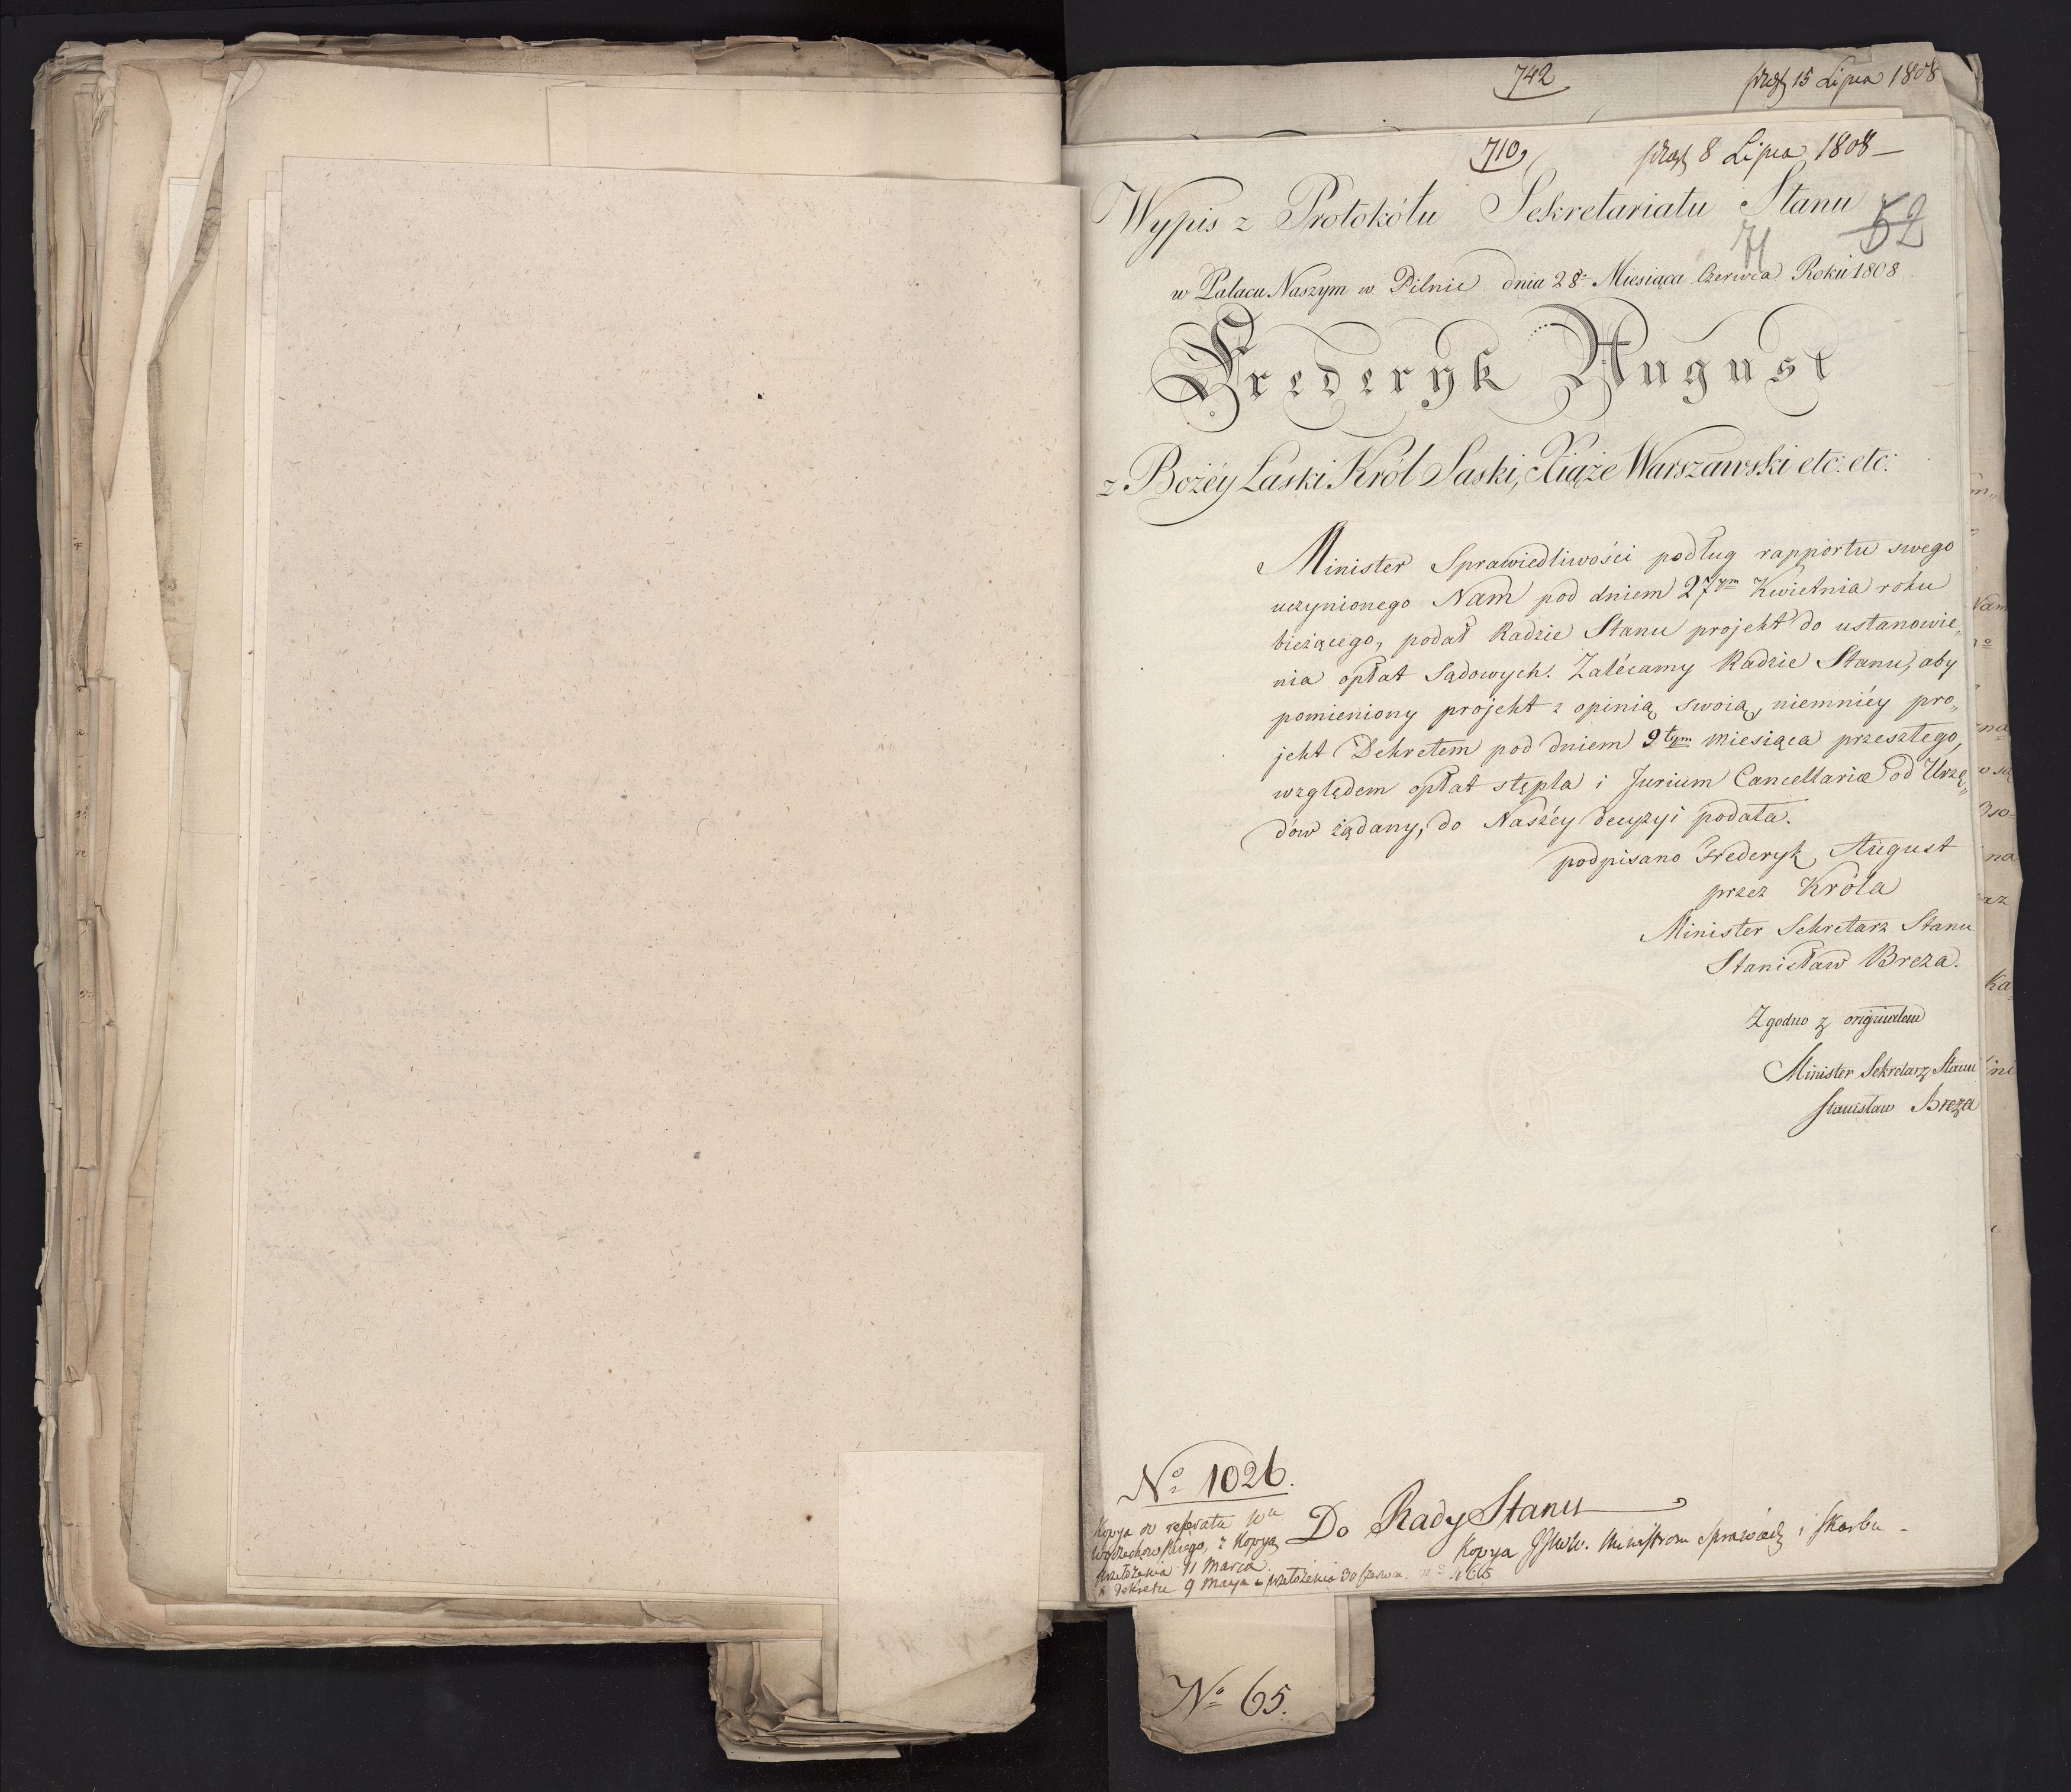 742
15 Lipca 1808
710
8 Lipca 1808 —
Wypis z Protokółu Sekretariatu Stanu
71 52
w Pałacu Naszym w Pilnic dnia 28. Miesiąca Czerwca Roku 1808
Fryderyk August
z Bożéy Łaski Król Saski, Xiąże Warszawski etc: etc:
Minister Sprawiedliwości podług rapportu swego
uczynionego Nam pod dniem 27ym Kwietnia roku
bieżącego, podał Radzie Stanu projekt do ustanowie„
nia opłat Sądowych. Zalécamy Radzie Stanu, aby
pomieniony projekt z opinią swoią, niemniéy pro„
jekt Dekretem pod dniem 9tym miesiąca przeszłego,
względem opłat stępla i Jurium Cancellariæ od Urzę„
dów żądany, do Naszéy decyzyi podała.
podpisano Frederyk August
przez Króla
Minister Sekretarz Stanu
Stanisław Breza.
Zgodno z originałem
Minister Sekretarz Stanu
Stanisław Breza
No 1026.
Do Rady Stanu
Kopya do referatu
z Kopyą
przełożenia 11 Marca
Dekretu 9 Maya
Kopya JJWW. Ministrom Sprawied i Skarbu -
No 65.